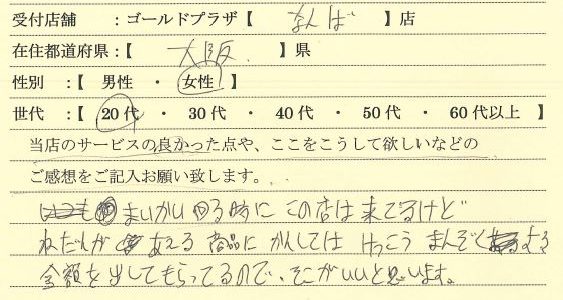 受付店舗　：ゴールドプラザ【　なんば　】店
在住都道府県：【　大阪　】県
性別　：【　男性　・　女性　】
世代　：【　20代　・　30代　・　40代　・　50代　・　60代以上　】
当店のサービスの良かった点や、ここをこうして欲しいなどの
ご感想をご記入お願い致します。
まいかい 売る時に この店は 来てるけど
ねだんが 商品に かんしては けっこう まんぞくする
金額を出してもらってるので、そこがいいと思います。